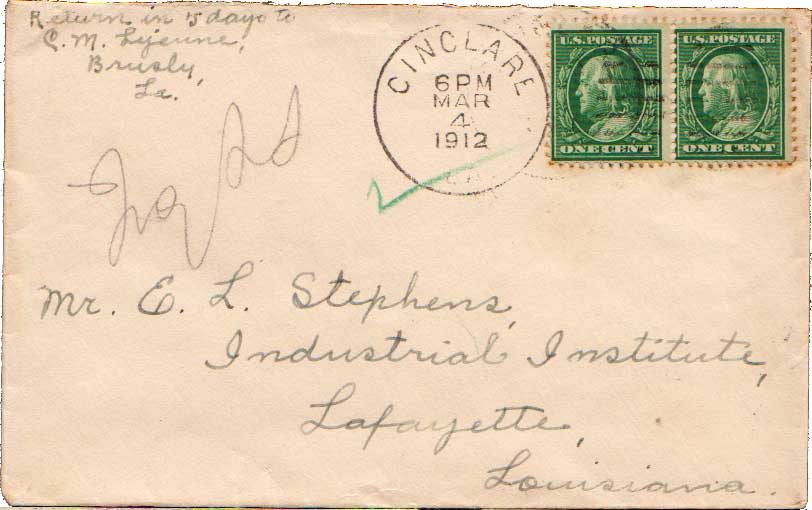 Return in 5 days to
C. M. Lejeune,
Brusly,
La.
CINCLARE
6PM
MAR
4
1912
LA.
U.S. POSTAGE
ONE CENT
U.S. POSTAGE
ONE CENT
Mr. E. L. Stephens,
Industrial Institute,
Lafayette,
Louisiana.